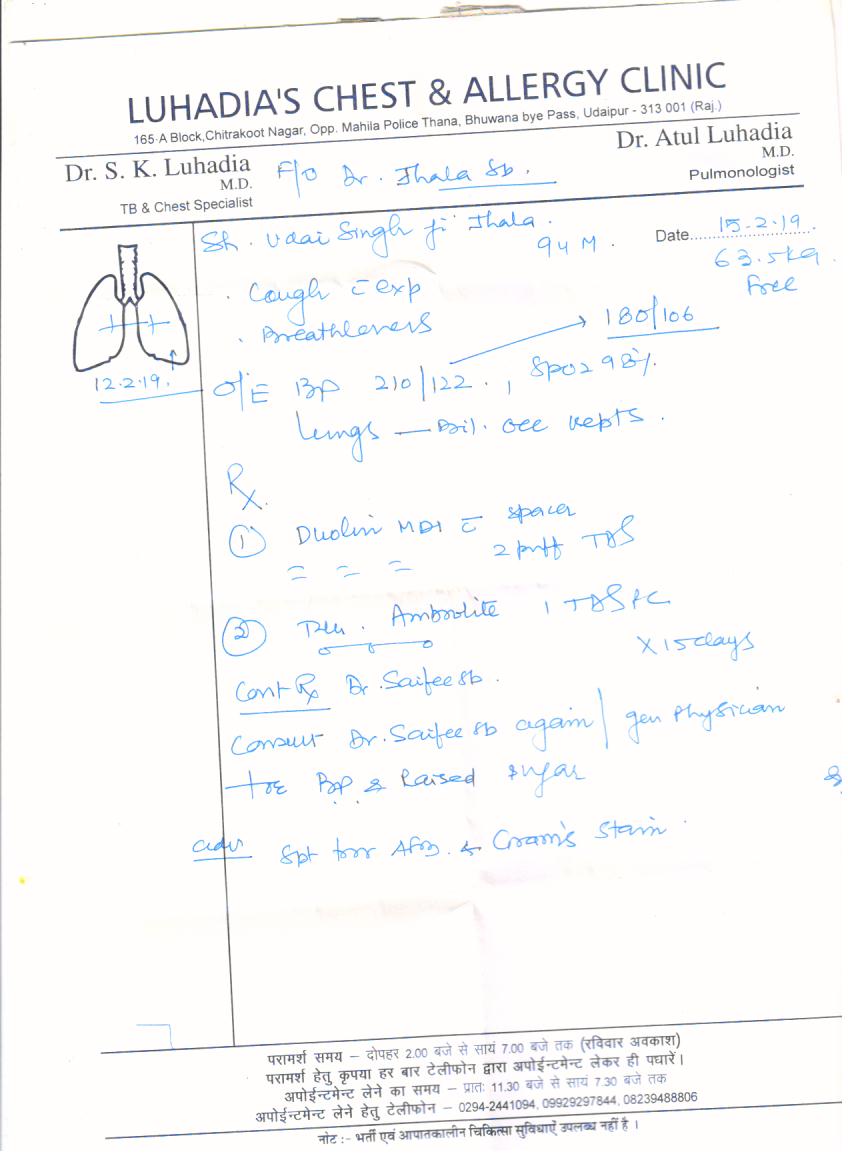 LUHADIA'S CHEST & ALLERGY CLINIC
165-A Block,Chitrakoot Nagar, Opp. Mahila Police Thana, Bhuwana bye Pass, Udaipur - 313 001 (Raj.)
Dr. S. K. Luhadia
M.D.
TB & Chest Specialist
F/O Dr. Jhala Sb.
Dr. Atul Luhadia
M.D.
Pulmonologist
Sh. Udai Singh ji Jhala.
94 M.
Date 15-2-19.
63.5kg.
Free
. Cough c̄ exp
. Breathleness
12.2.19.
180/106
O/E BP 210/122. , SpO2 98%.
Lungs — Bil. occ
Rx
① Duolin MDI c̄ spacer
2 puff TDS
② Ambrolite 1 TDS PC
X 15 days
Cont Rx Dr. Saifee sb.
Consult Dr. Saifee sb again / gen Physician
for BP & Raised sugar
adv Spt for AFB & Gram's Stain.
परामर्श समय – दोपहर 2.00 बजे से सायं 7.00 बजे तक (रविवार अवकाश)
परामर्श हेतु कृपया हर बार टेलीफोन द्वारा अपोईन्टमेन्ट लेकर ही पधारें।
अपोईन्टमेन्ट लेने का समय – प्रातः 11.30 बजे से सायं 7.30 बजे तक
अपोईन्टमेन्ट लेने हेतु टेलीफोन – 0294-2441094, 09929297844, 08239488806
नोट :- भर्ती एवं आपातकालीन चिकित्सा सुविधाऐं उपलब्ध नहीं है ।